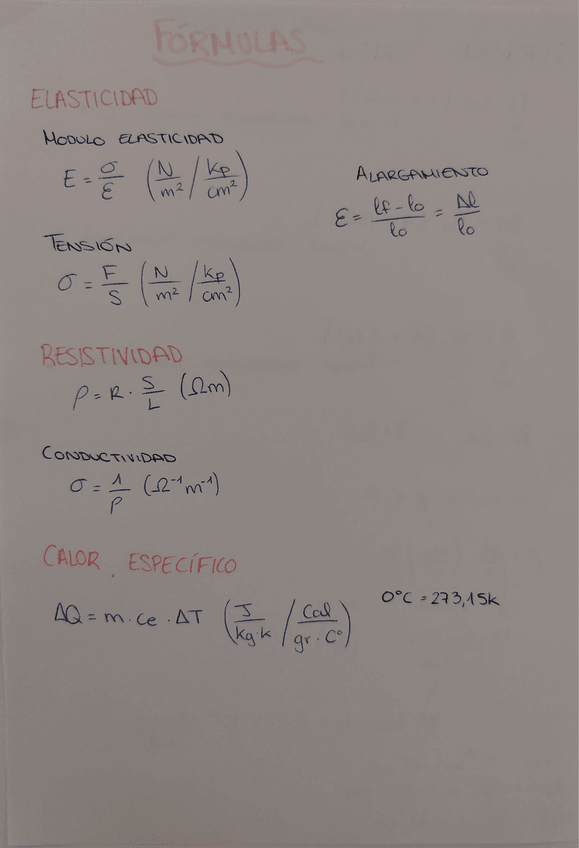 FÓRMULAS
ELASTICIDAD
MODULO ELASTICIDAD
E = σ/ε (N/m² / Kp/cm²)
ALARGAMIENTO
ε = (lf - lo)/lo = Δl/lo
TENSIÓN
σ = F/S (N/m² / Kp/cm²)
RESISTIVIDAD
ρ = R · S/L (Ωm)
CONDUCTIVIDAD
σ = 1/ρ (Ω⁻¹ m⁻¹)
CALOR ESPECÍFICO
ΔQ = m · ce · ΔT (J/kg·k / Cal/gr·Cº)
0ºC = 273,15k